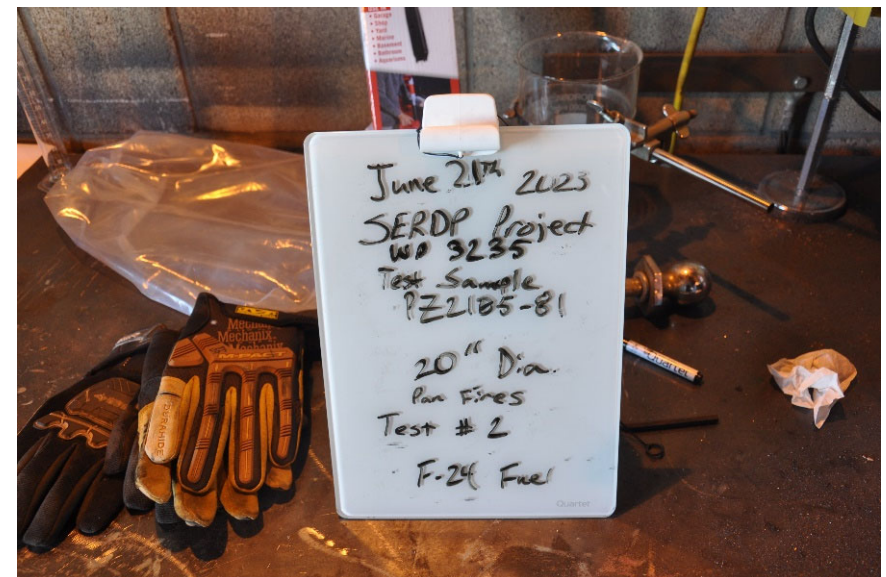 • Garage
• Shop
• Yard
• Marine
• Basement
• Bathroom
• Aquariums
June 21th 2023
SERDP Project
WP 3235
Test Sample
PZ2185-81
20" Dia.
Pan Fires
Test # 2
F-24 Fuel
Quartet
Mechanix
M-PACT
DURAHIDE
Quartet